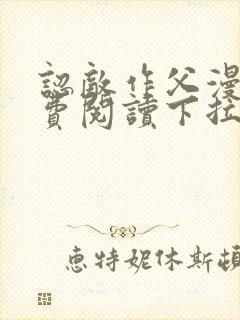 認敵作父漫
費閱讀下拉
惠特妮休斯頓